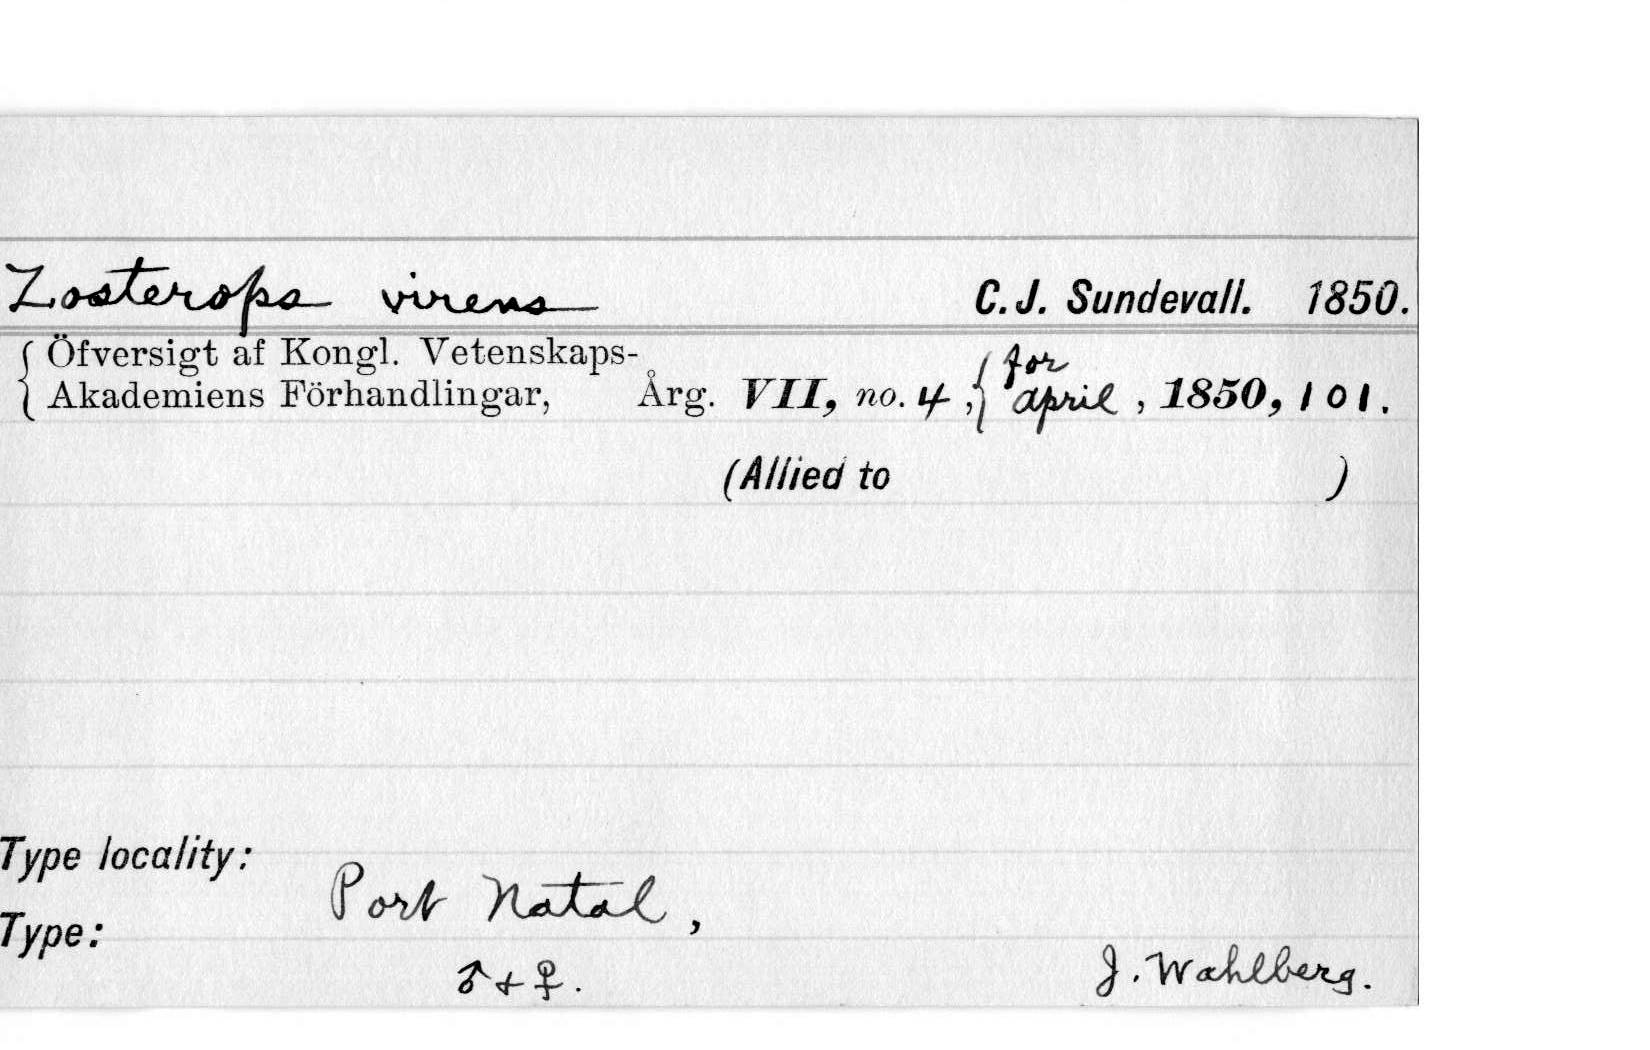 Zosterops virens C. J. Sundevall. 1850.
Öfversigt af Kongl. Vetenskaps-
Akademiens Förhandlingar, Årg. VII, no. 4, { for april, 1850, 101.
(Allied to )
Type locality:
Port Natal,
Type:
♂ + ♀.
J. Wahlberg.